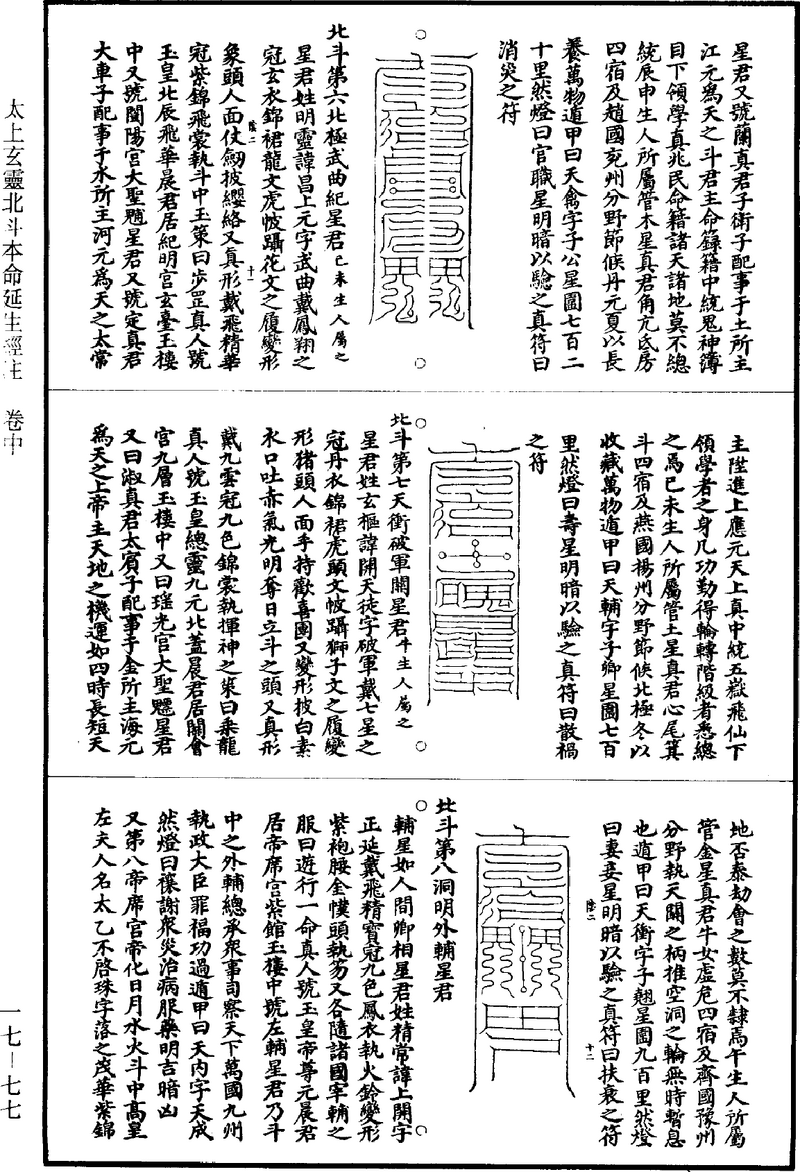 太上玄靈北斗本命延生經註　卷中
一七－七七
星君又號蘭真君子衛子配事于土所主
江元為天之斗君主命籙籍中統鬼神簿
目下領學真兆民命籍諸天諸地莫不總
統辰申生人所屬管木星真君角亢氐房
四宿及趙國兗州分野節候丹元夏以長
養萬物遁甲曰天禽字子公星圍七百二
十里然燈曰官職星明暗以驗之真符曰
消災之符
北斗第六北極武曲紀星君巳未生人屬之
星君姓明靈諱昌上元字武曲戴鳳翔之
冠玄衣錦裙龍文虎帔躡花文之履變形
象頭人面仗劒披纓絡又真形戴飛精華
冠紫錦飛裳執斗中玉策曰步罡真人號
玉皇北辰飛華晨君居紀明宫玄臺玉樓
中又號闓陽宫大聖䰢星君又號定真君
大車子配事于水所主河元為天之太常
主陞進上應元天上真中統五嶽飛仙下
領學者之身凡功勤得輪轉階級者悉總
之焉巳未生人所屬管土星真君心尾箕
斗四宿及燕國揚州分野節候北極冬以
收藏萬物遁甲曰天輔字子卿星圍七百
里然燈曰壽星明暗以驗之真符曰散禍
之符
北斗第七天衝破軍關星君午生人屬之
星君姓玄樞諱開天徒字破軍戴七星之
冠丹衣錦裙虎頭文帔躡獅子文之履變
形猪頭人面手持歡喜團又變形披白素
衣口吐赤氣光明奪日立斗之頭又真形
戴九雲冠九色錦裳執揮神之策曰乘龍
真人號玉皇總靈九元北蓋晨君居關會
宫九層玉樓中又曰瑤光宫大聖魒星君
又曰淑真君太賓子配事于金所主海元
為天之上帝主天地之機運如四時長短天
地否泰劫會之數莫不隸焉午生人所屬
管金星真君牛女虛危四宿及齊國豫州
分野執天關之柄推空洞之輪無時暫息
也遁甲曰天衝字子翹星圍九百里然燈
曰妻妾星明暗以驗之真符曰扶衰之符
北斗第八洞明外輔星君
輔星如人間卿相星君姓精常諱上開字
正延戴飛精寶冠九色鳳衣執火鈴變形
紫袍腰金幞頭執笏又各隨諸國宰輔之
服曰遊行一命真人號玉皇帝尊元晨君
居帝席宫紫館玉樓中號左輔星君乃斗
中之外輔總承衆事司察天下萬國九州
執政大臣罪福功過遁甲曰天内字天成
然燈曰禳謝衆災治病服藥明吉暗凶
又第八帝席宫帝化日月水火斗中髙皇
左夫人名太乙不啓珠字落之茂華紫錦